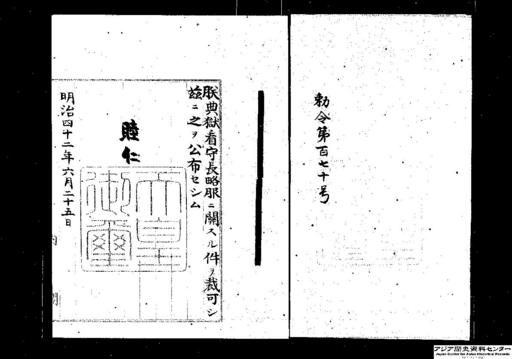 勅令第百七十号
朕典獄看守長略服ニ關スル件ヲ裁可シ
茲ニ之ヲ公布セシム
睦仁
天皇
御璽
明治四十二年六月二十五日
アジア歴史資料センター
Japan Center for Asian Historical Records